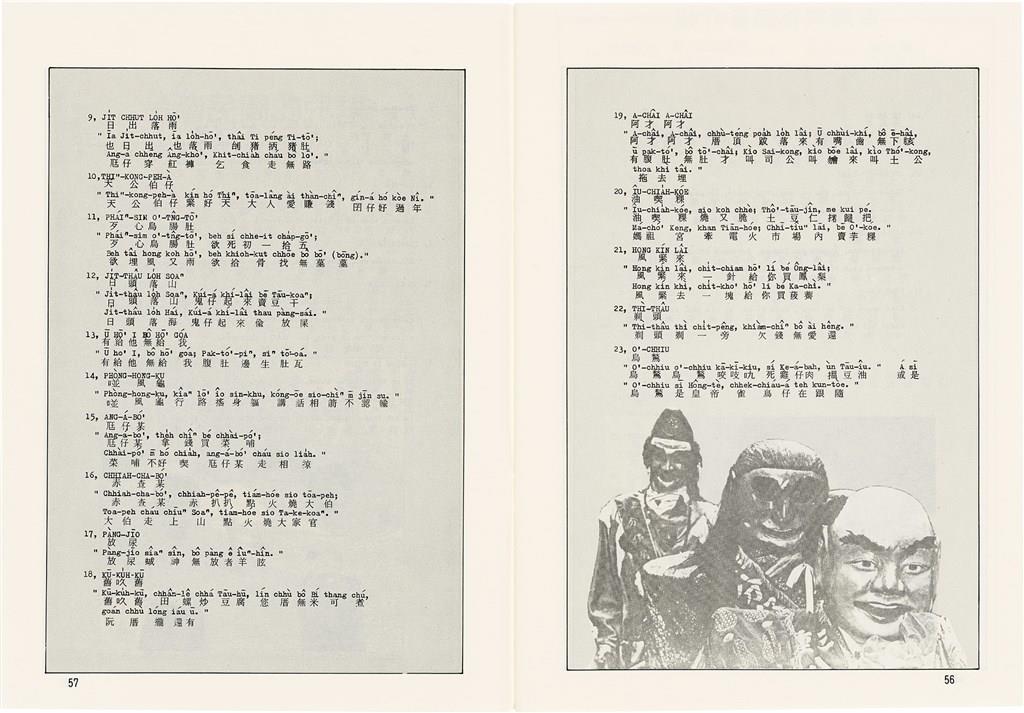 9, JI̍T CHHUT LO̍H HŌ͘
日 出 落 雨
" Iā Ji̍t-chhut, iā lo̍h-hō͘, thâi Ti péng Ti-tō͘;
也 日 出 也 落 雨 刣 豬 炳 豬 肚
Ang-á chhēng Âng-khò͘, Khit-chiah cháu bô lō͘. "
尫 仔 穿 紅 褲 乞 食 走 無 路
10,THIⁿ-KONG-PEH-À
天 公 伯 仔
" Thiⁿ-kong-peh-à kín hó Thiⁿ, tōa-lâng ài thàn-chîⁿ, gín-á hó kòe Nî. "
天 公 伯 仔 緊 好 天 大 人 愛 賺 錢 囝 仔 好 過 年
11, PHÁIⁿ-SIM O͘-TN̂G-TŌ͘
歹 心 烏 腸 肚
" Pháiⁿ-sim o͘-tn̂g-tō͘, beh sí chhe-it cha̍p-gō͘;
歹 心 烏 腸 肚 欲 死 初 一 拾 五
Beh tâi hong koh hō͘, beh khioh-kut chhōe bô bō͘ (bōng)."
欲 埋 風 又 雨 欲 拾 骨 找 無 墓 墓
12, JI̍T-THÂU LO̍H SOAⁿ
日 頭 落 山
" Ji̍t-thâu lo̍h Soaⁿ, Kúi-á khí-lâi bē Tāu-koaⁿ;
日 頭 落 山 鬼 仔 起 來 賣 豆 干
Ji̍t-thâu lo̍h Hái, Kúi-á khí-lâi thau pàng-sái. "
日 頭 落 海 鬼 仔 起 來 偷 放 屎
13, Ū HŌ͘ I BÔ HŌ͘ GÓA
有 給 他 無 給 我
" Ū hō͘ I, bô hō͘ góa; Pak-tó͘-piⁿ, siⁿ tō͘-oá. "
有 給 他 無 給 我 腹 肚 邊 生 肚 瓦
14, PHÒNG-HONG-KU
𪢕 風 龜
" Phòng-hong-ku, kîaⁿ lō͘ îo sin-khu, kóng-ōe sio-chìⁿ m̄ jīn su. "
風 龜 行 路 搖 身 軀 講 話 相 諍 不 認 輸
15, ANG-Á-BÓ͘
尫 仔 某
" Ang-á-bó͘, the̍h chîⁿ bé chhài-pó͘;
尫 仔 某 拿 錢 買 菜 哺
Chhài-pó͘ m̄ hó chia̍h, ang-á-bó͘ cháu sio lia̍h. "
菜 哺 不 好 喫 尫 仔 某 走 相 涼
16, CHHIAH-CHA-BÓ͘
赤 查 某
" Chhiah-cha-bó͘, chhiah-pê-pê, tiám-hóe sio tōa-peh;
赤 查 某 赤 扒 扒 點 火 燒 大 伯
Toa-peh cháu chīuⁿ Soaⁿ, tiám-hóe sio Ta-ke-koaⁿ. "
大 伯 走 上 山 點 火 燒 大 家 官
17, PÀNG-JĪO
放 尿
" Pàng-jīo sîaⁿ sîn, bô pàng ê îuⁿ-hîn. "
放 尿 蜮 神 無 放 者 羊 眩
18, KŪ-KU̍H-KŪ
舊 㕤 舊
" Kū-ku̍h-kū, chhân-lê chhá Tāu-hū, lín chhù bô Bí thang chú,
舊 㕤 舊 田 螺 炒 豆 腐 您 厝 無 米 可 煮
goán chhù lóng iáu ū. "
阮 厝 攏 還 有
57
19, A-CHÂI A-CHÂI
阿 才 阿 才
" A-châi, A-châi, chhù-téng poa̍h lo̍h lâi; Ū chhùi-khí, bô ē-hâi,
阿 才 阿 才 厝 頂 跋 落 來 有 嘴 齒 無 下 頦
ū pak-tó͘, bô tō͘-châi; Kìo Sai-kong, kìo bōe lâi, kìo Thó͘-kong,
有 腹 肚 無 肚 才 叫 司 公 叫 獪 來 叫 土 公
thoa khì tâi. "
拖 去 埋
20, IÛ-CHIA̍H-KÓE
油 喫 粿
" Iû-chia̍h-kóe, sio koh chhè; Thô͘-tāu-jîn, me kui pé.
油 喫 粿 燒 又 脆 土 豆 仁 搙 歸 把
Má-chó͘ Keng, khan Tiān-hóe; Chhī-tîuⁿ lāi, bē O͘-kóe. "
媽 祖 宮 牽 電 火 市 場 內 賣 芋 粿
21, HONG KÍN LÂI
風 緊 來
" Hong kín lâi, chi̍t-chiam hō͘ lí bé Ông-lâi;
風 緊 來 一 針 給 你 買 鳳 梨
Hong kín khì, chi̍t-kho͘ hō͘ lí bé Ka-chì. "
風 緊 去 一 塊 給 你 買 茭 薺
22, THÌ-THÂU
剃 頭
" Thì-thâu thì chi̍t-pêng, khiàm-chîⁿ bô ài hêng. "
剃 頭 剃 一 旁 欠 錢 無 愛 還
23, O͘-CHHIU
烏 鶖
" O͘-chhiu o͘-chhiu kā-kī-kiu, sí Ke-á-bah, ùn Tāu-îu. " Á sī
烏 鶖 烏 鶖 咬 吱 叺 死 雞 仔 肉 搵 豆 油 或 是
" O͘-chhiu sī Hông-tè, chhek-chiáu-á teh kun-tòe. "
烏 鶖 是 皇 帝 雀 鳥 仔 在 跟 隨
56